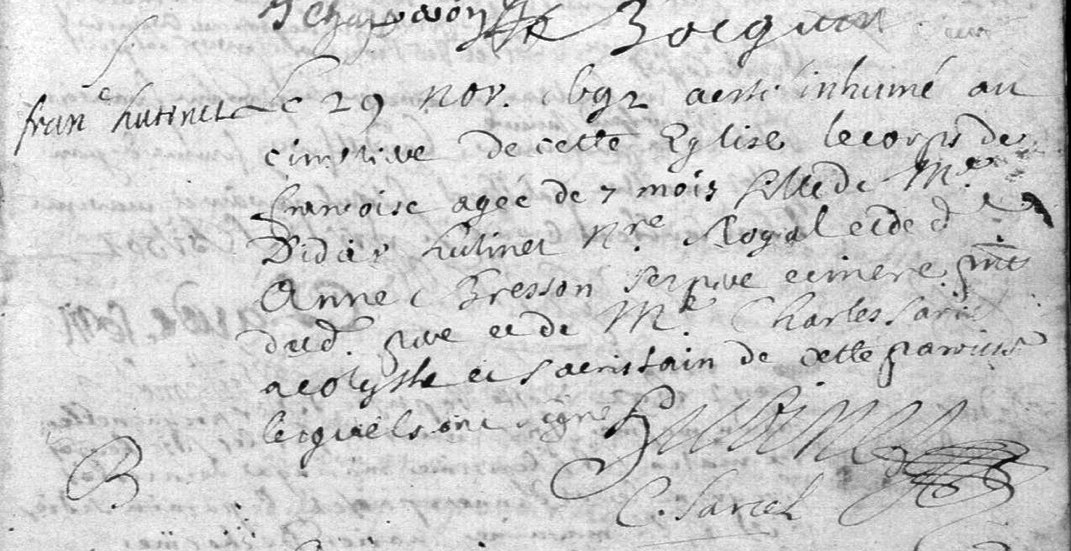 Bocquin
fran^e hutinet Le 29 nov. 1692 a esté inhumé au
cimetiere de cette Eglise le corps de
francoise agée de 7 mois fille de M^e
Didier hutinet N^re Royal et de d^e
Anne Bresson ses pere et mere p^nts
dud. pere et de M^e Charles Sarcel
acolythe et sacristain de cette paroisse
lesquels ont signé Hutinet
C. Sarcel
B